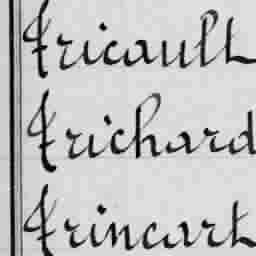 Fricault
Frichard
Frincart